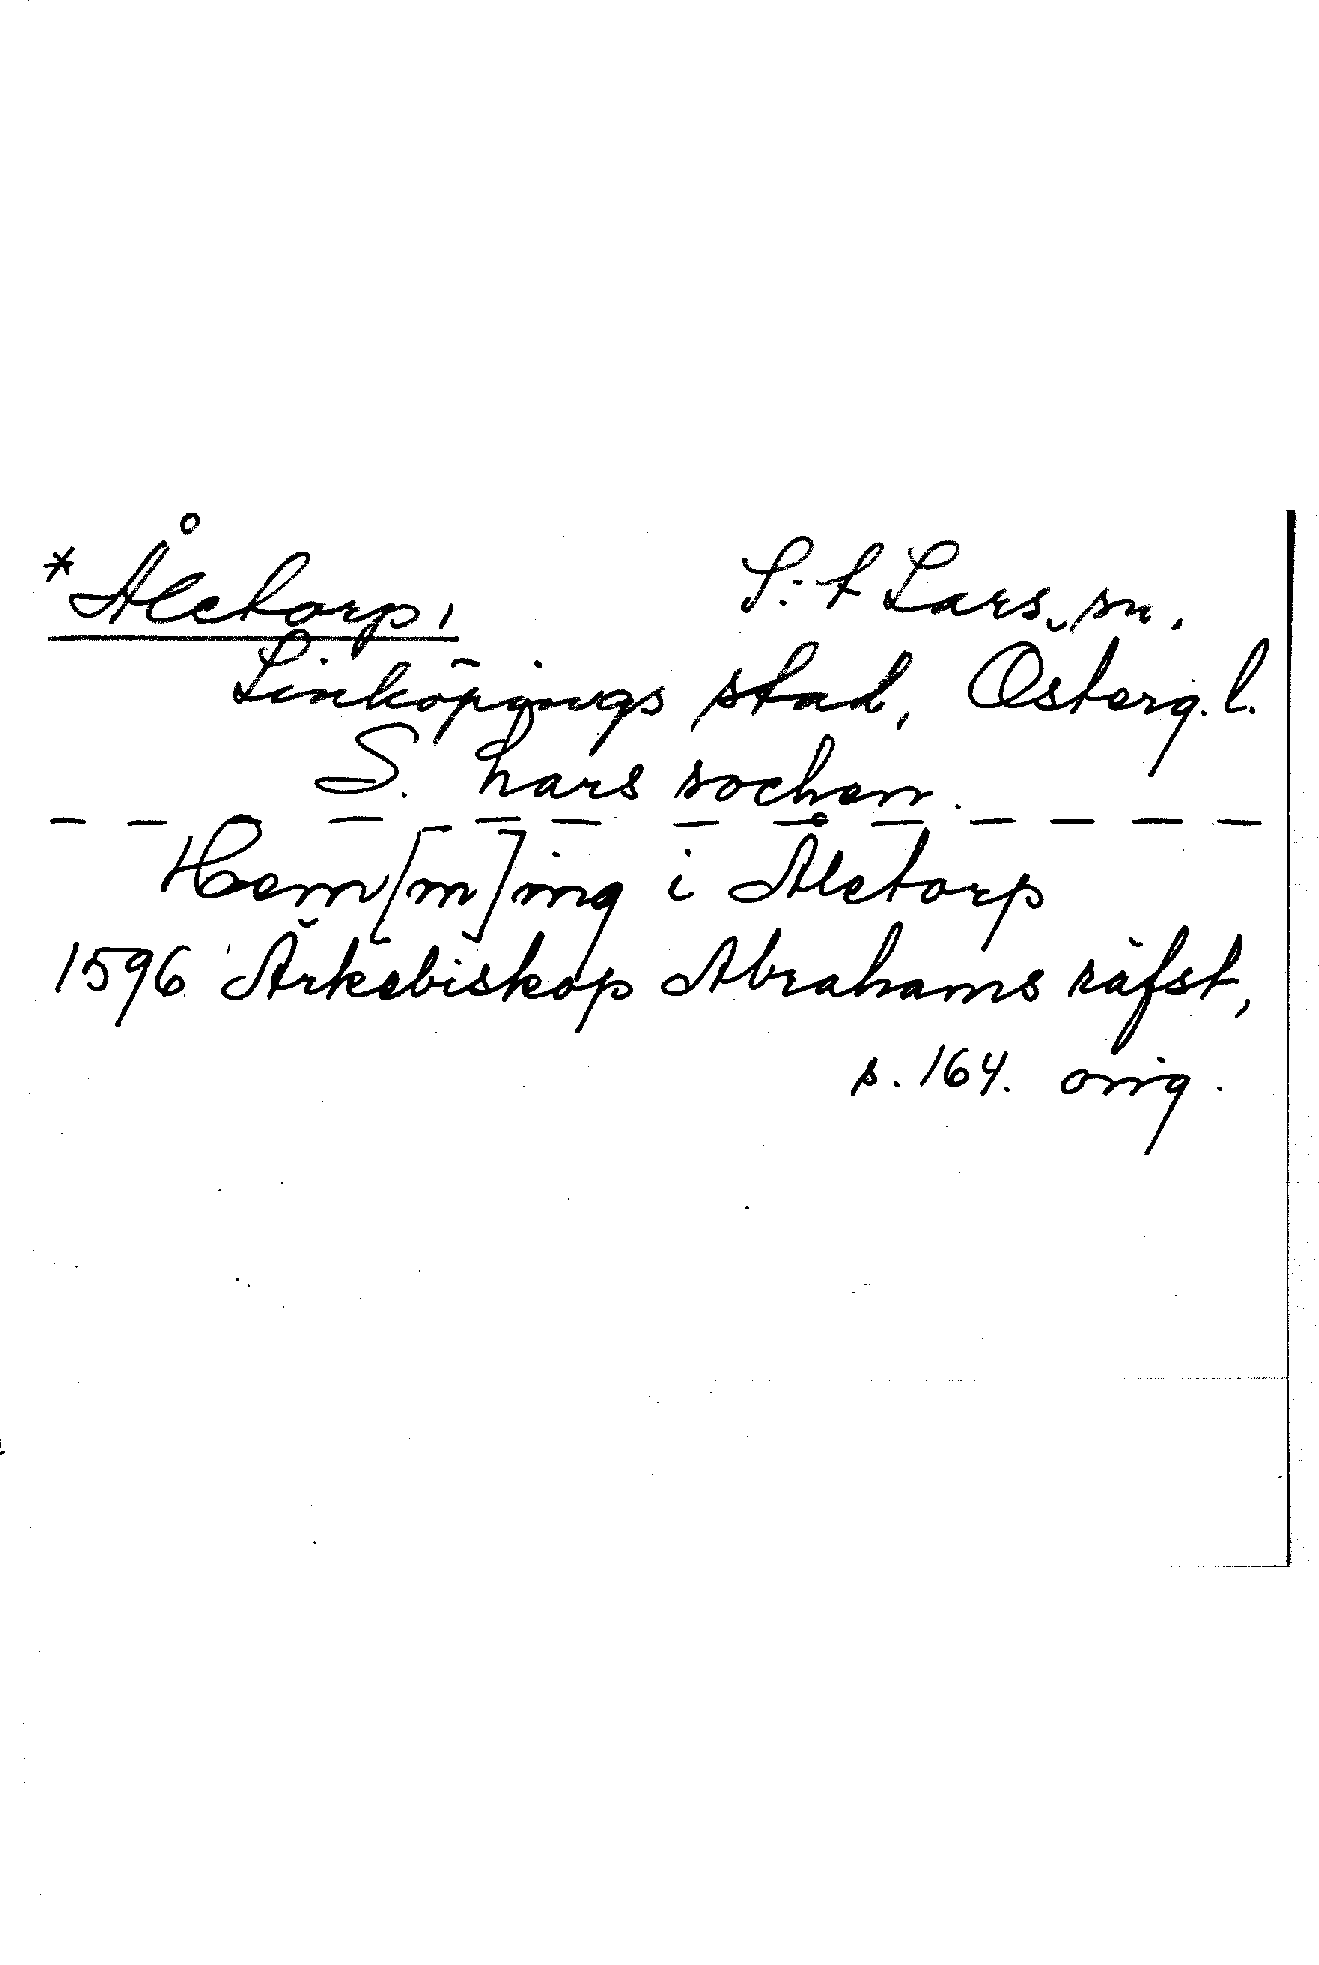 *Åletorp. S:t Lars sn.
Linköpings stad, Österg. l.
S. Lars sochen.
Hem[m]ing i Åletorp
1596 Ärkebiskop Abrahams räfst,
s. 164. orig.